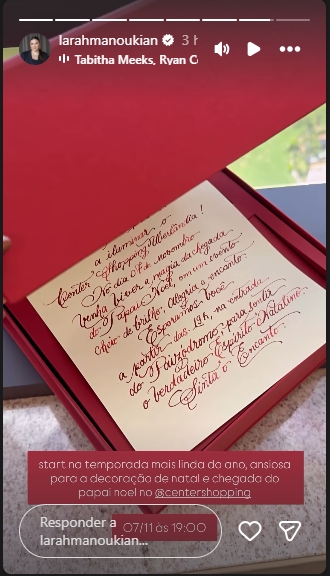 larahmanoukian 3 h
Tabitha Meeks, Ryan C
a iluminar o
Center Shopping Uberlândia!
No dia 07 de novembro
venha viver a magia da chegada
do Papai Noel, em um evento
cheio de brilho, alegria e encanto.
Esperamos você
a partir das 19h, na entrada
do para juntos
o verdadeiro Espírito Natalino.
Sinta o Encanto.
start na temporada mais linda do ano, ansiosa
para a decoração de natal e chegada do
papai noel no @centershopping
07/11 às 19:00
Responder a
larahmanoukian...